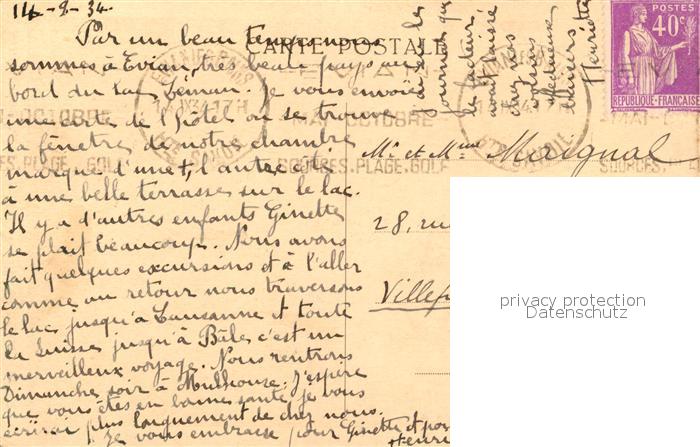 14-8-34.
Par un beau temps nous
sommes à Evian, très beau pays au
bord du lac Léman. Je vous envoie
une carte de l'hôtel où se trouve
la fenêtre de notre chambre
marquée d'une +, l'autre côté
à une belle terrasse sur le lac.
Il y a d'autres enfants Ginette
se plait beaucoup. Nous avons
fait quelques excursions et à l'aller
comme au retour nous traversons
le lac jusqu'à Lausanne et toute
la Suisse jusqu'à Bâle c'est un
merveilleux voyage. Nous rentrons
Dimanche soir à Mulhouse. J'espère
que vous êtes en bonne santé je vous
écrirai plus longuement de chez nous.
Je vous embrasse pour Ginette et
CARTE POSTALE
journal que
le facteur
avait laissé
chez vos
Henriette
POSTES
40c
REPUBLIQUE FRANÇAISE
MAI-OCTOBRE
SOURCES. PLAGE. GOLF
Mr et Mme Maignal
28, rue
Villef
privacy protection
Datenschutz